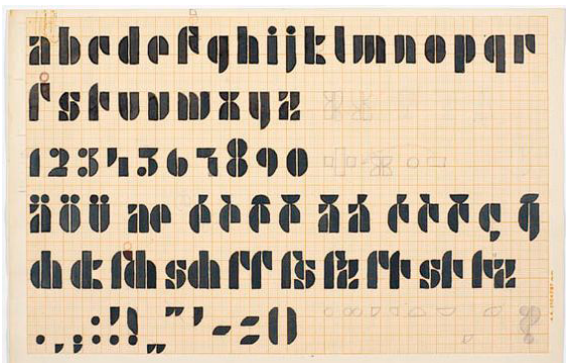 abcdefghijklmnopqr
ſstuvwxyz
1234567890
äöü ae
ch ck ſch sch ff ſs ſz ft st tz
. , ; : ! „ ” ’ - = ()